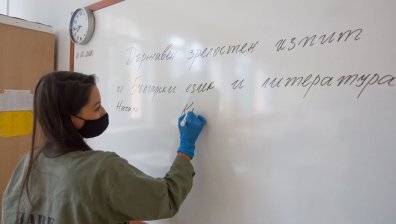 Държавен зрелостен изпит
по Български език и литература
Начало К